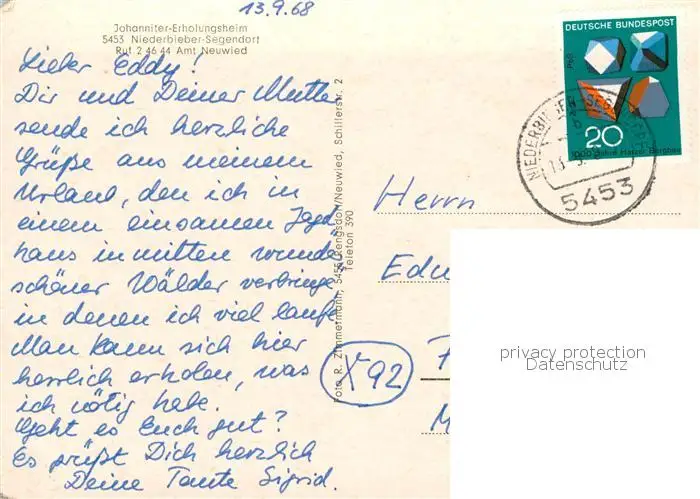 13.9.68
Johanniter-Erholungsheim
5453 Niederbieber-Segendorf
Ruf 2 46 44 Amt Neuwied
Lieber Eddy!
Dir und Deiner Mutter
sende ich herzliche
Grüße aus meinem
Urlaub, den ich in
einem einsamen Jagd-
haus inmitten wunder-
schöner Wälder verbringe,
in denen ich viel laufe.
Man kann sich hier
herrlich erholen, was
ich nötig habe.
Geht es Euch gut?
Es grüßt Dich herzlich
Deine Tante Sigrid.
Foto R. Zimmermann, 5455 Rengsdorf/Neuwied, Schillerstr. 2
Telefon 390
DEUTSCHE BUNDESPOST
20
1000 Jahre Harzer Bergbau
NIEDERBIEBER-SEGENDORF
5453
Herrn
Edu
X92
privacy protection
Datenschutz